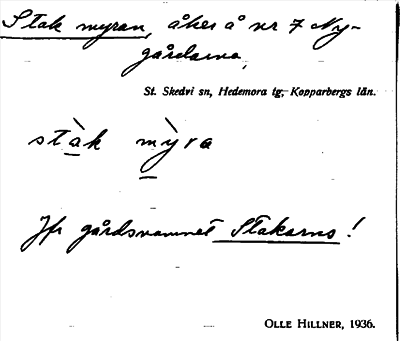 Stak myran, åker å nr 7 Ny-
gårdarna,
St. Skedvi sn, Hedemora tg, Kopparbergs län.
stàk mỳra
Jfr gårdsnamnet Stakarns!
OLLE HILLNER, 1936.